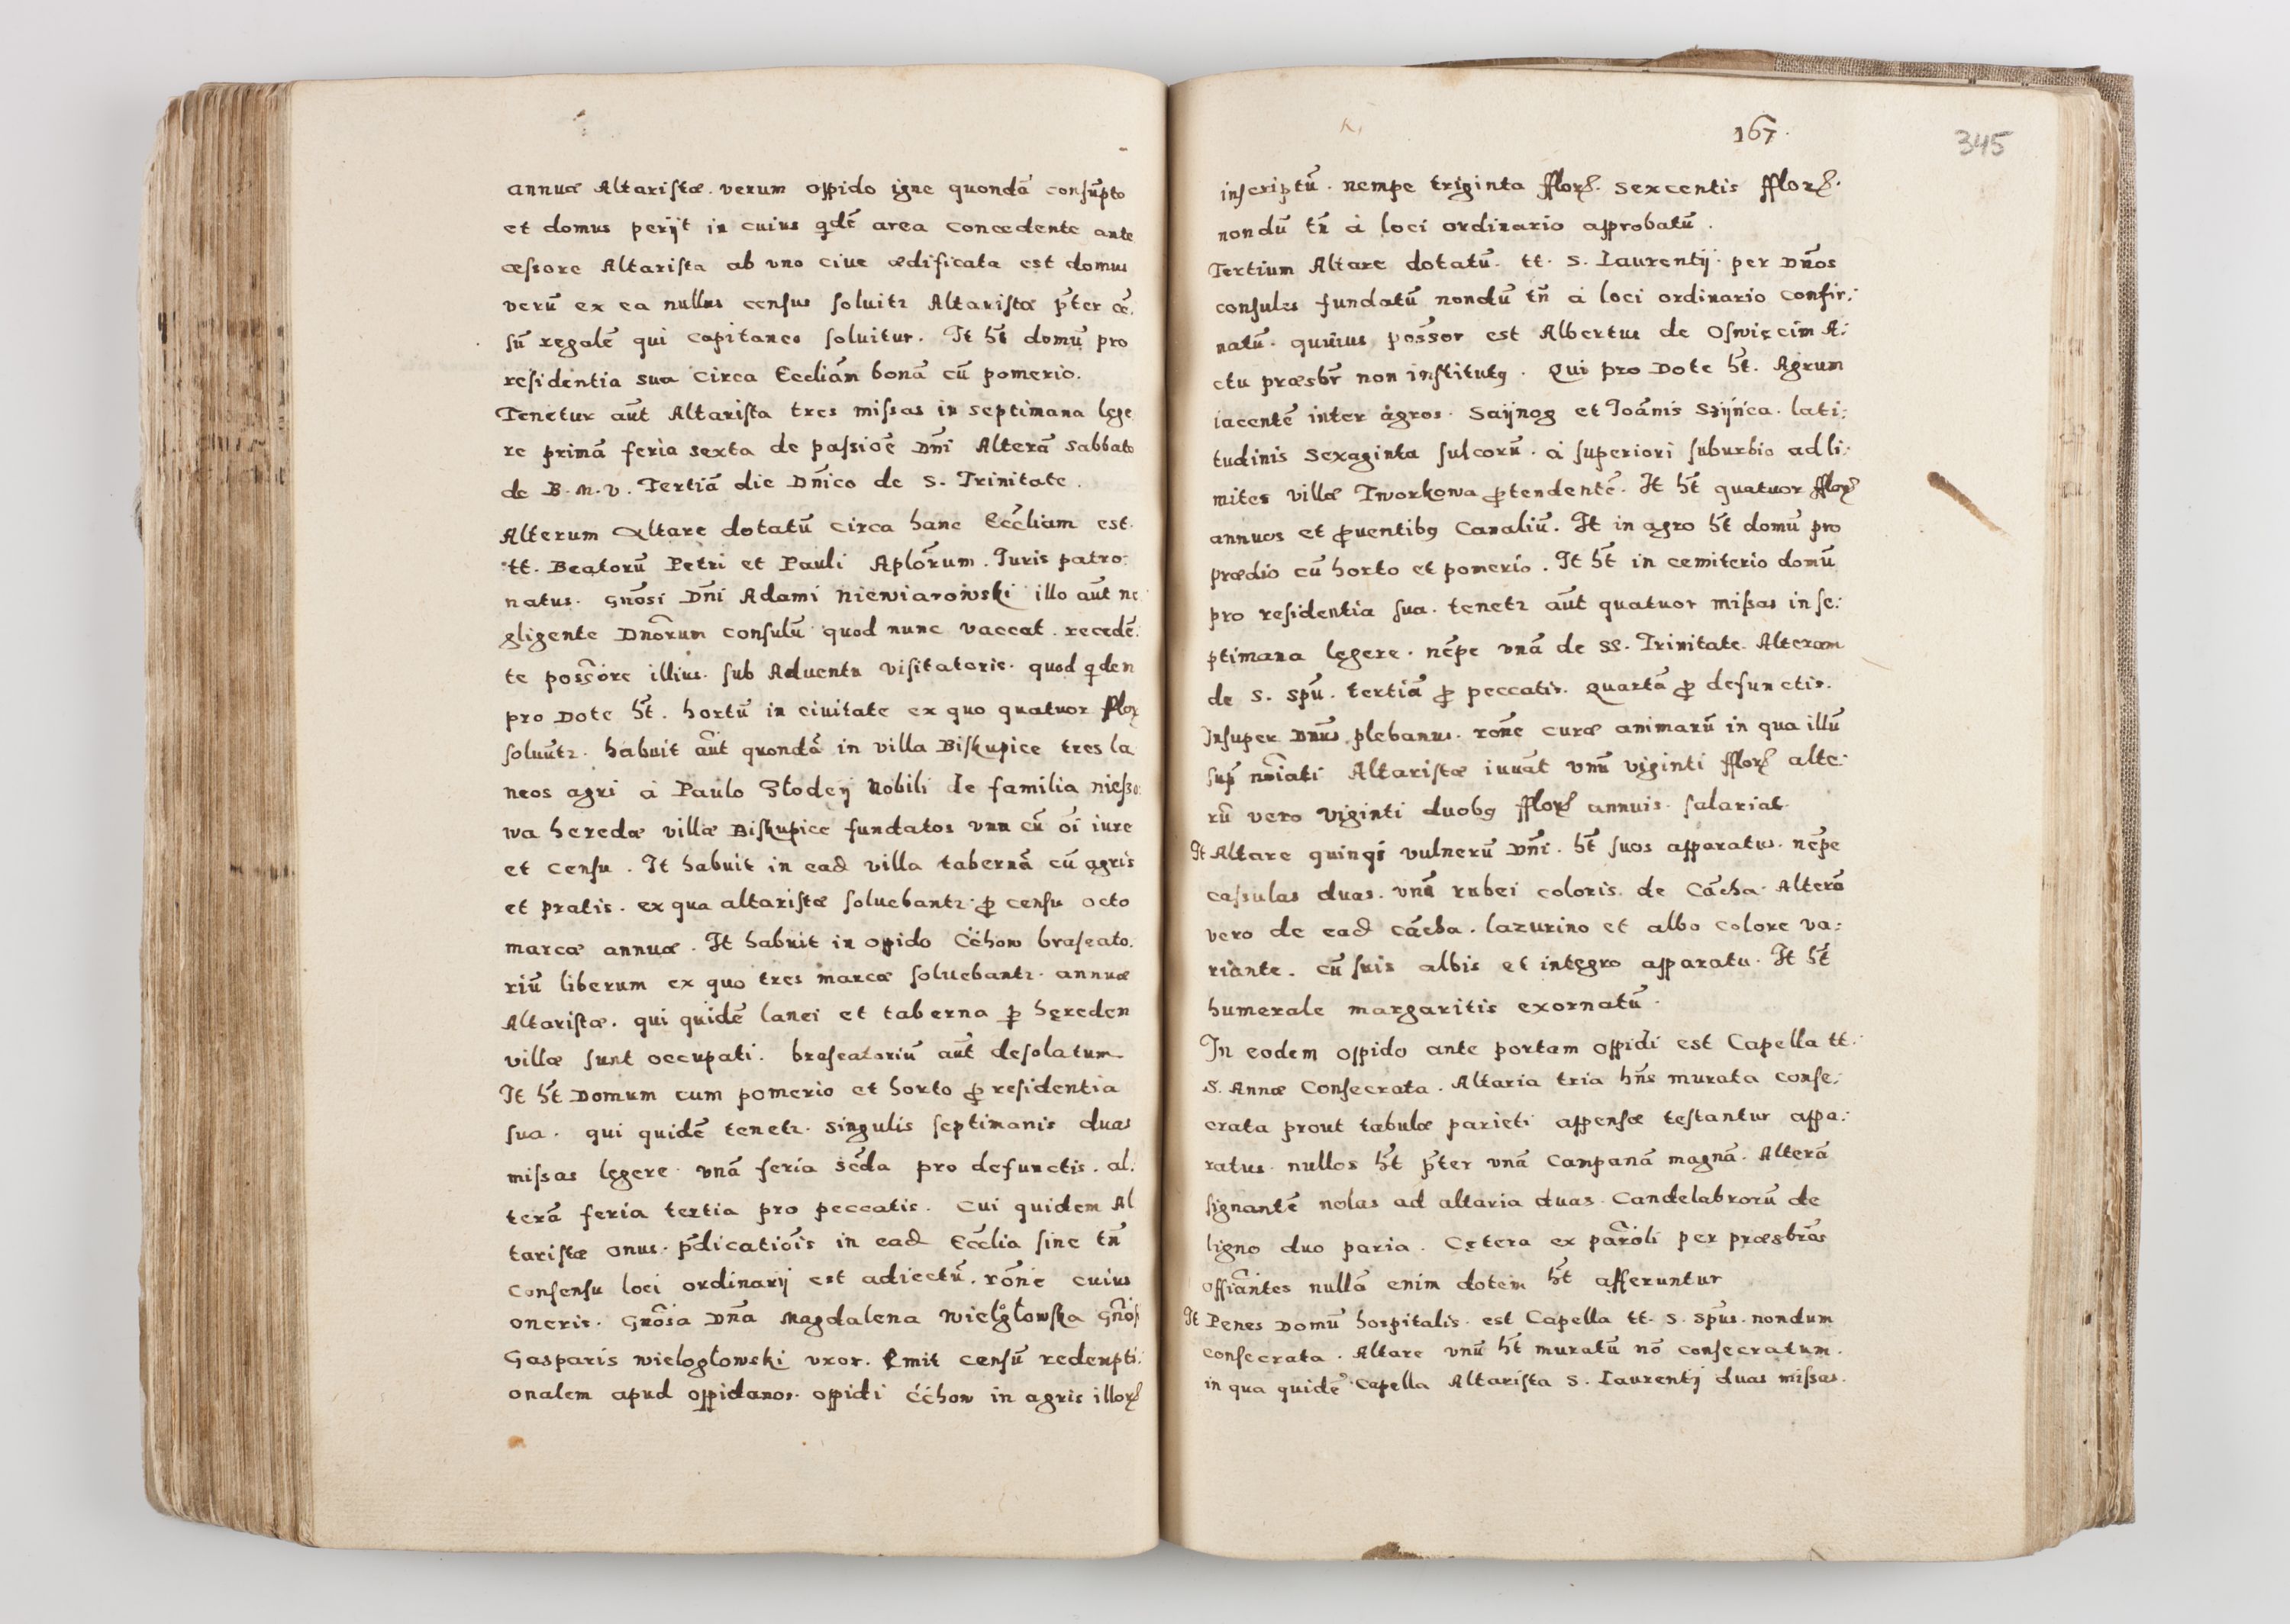 annuæ Altaristæ. verum oppido igne quondã consũpto
et domus perijt in cuius qdẽ area concedente ante
cæssore Altarista ab vno ciue ædificata est domus
verũ ex ea nullus census soluitr Altaristæ p̃ter cẽ.
sũ regalẽ qui capitaneo soluitur. It h̃t domũ pro
residentia sua circa Eccliãm bonã cũ pomerio.
Tenetur aũt Altarista tres missas in septimana lege
re primã feria sexta de passiõe Dñi Alterã sabbato
de B. M. V. Tertiã die Dñico de S. Trinitate.
Alterum Altare dotatũ circa hanc Eccĩiam est.
tt. Beatorũ Petri et Pauli Aplõrum. Juris patro:
natus. Gnõsi Dñi Adami Niewiarowski illo aũt ne
gligente Dnõrum consulũ quod nunc vaccat. recedẽ:
te possore illius. sub Aduentu visitatoris. quod qden
pro Dote h̃t. hortũ in ciuitate ex quo quatuor flor
soluũtr. habuit aũt quondã in villa Biskupice tres la
neos agri à Paulo Słodej Nobili de familia niesso:
wa heredæ villæ Biskupice fundatos vnn cũ oĩ iure
et censu. It habuit in ead villa tabernã cũ agris
et pratis. ex qua altaristæ soluebantr. p censu octo
marcæ annuæ. It habuit in opido Cċhow braseato.
riũ liberum ex quo tres marcæ soluebantr. annuæ
Altaristæ. qui quidẽ lanei et taberna p hęreden
villæ sunt occupati. braseatoriũ aũt desolatum
It h̃t Domum cum pomerio et horto p residentia
sua. qui quidẽ tenetr. singulis septimanis duas
missas legere. vnã feria sẽda pro defunctis. al.
terã feria tertia pro peccatis. Cui quidem Al
taristæ onus. p̃dicatiõis in ead Eccĩia sine tñ
Consensu loci ordinarij est adiectũ. rõne cuius
oneris. Gnõsa Dña Magdalena Wielgłowska Gnõs
Gasparis Wielogłowski vxor. Emit censũ redempti:
onalem apud oppidanos. oppidi Cċhow in agris illor
167.
345
inscriptũ. nempe triginta fflor. sexcentis fflor.
nondũ tñ à loci ordinario approbatũ.
Tertium Altare dotatũ. tt. S. Laurentij. per Dños
consules fundatũ nondũ tñ à loci ordinario confir:
matũ. quuius possor est Albertus de Oswięcim A:
ctu præsbr̃ non institutq. Qui pro Dote h̃t. Agrum
iacentẽ inter agros. Saijnog et Joãnis Szijńca. lati:
tudinis Sexaginta sulcorũ. à superiori suburbio ad li:
mites villæ Tworkowa ptendentẽ. It h̃t quatuor fflor
annuos et puentibq Canaliũ. It in agro h̃t domũ pro
prædio cũ horto et pomerio. It h̃t in cemiterio domũ
pro residentia sua. tenetr aũt quatuor missas in se:
ptimana legere. nẽpe vnã de SS. Trinitate. Alteram
de S. Spũ. tertiã p peccatis. Quartã p defunctis.
Insuper Dnũs plebanus. rõne curæ animarũ in qua illũ
sup nnĩati Altaristæ iuuãt vnũ viginti fflor alte:
rũ vero viginti duobq fflor annuis. salariat.
It Altare quinqi vulnerũ Dñi. h̃t suos apparatus. nẽpe
cassulas duas. vnã rubei coloris. de Cãcha. Alterã
vero de ead cãcha. lazurino et albo colore va:
riante. cũ suis albis et integro apparatu. It h̃t
humerale margaritis exornatũ.
In eodem oppido ante portam oppidi est Capella tt.
S. Annæ Consecrata. Altaria tria hñs murata conse:
crata prout tabulæ parieti appensæ testantur appa:
ratus. nullos h̃t p̃ter vnã Campanã magnã. Alterã
signantẽ nolas ad altaria duas. Candelabrorũ de
ligno duo paria. Cętera ex parõli per præsbrãs
offiãntes nullã enim dotem h̃t afferuntur
It Penes Domũ hospitalis. est Capella tt. S. Spũs. nondum
consecrata. Altare vnũ h̃t muratũ nõ consecratum.
in qua quidẽ Capella Altarista S. Laurentij duas missas.